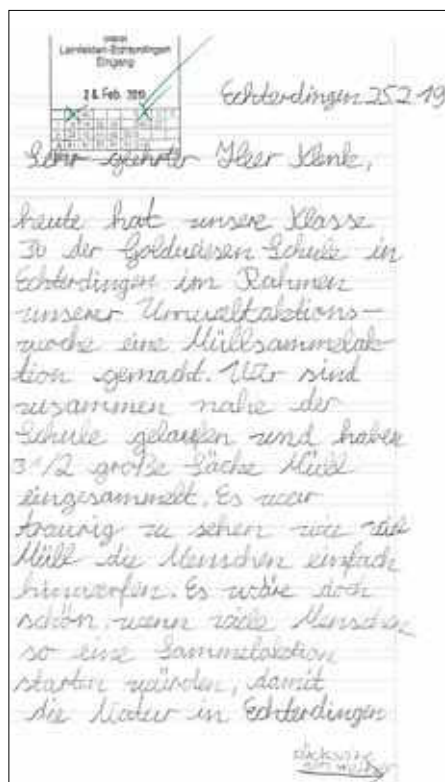 Leinfelden-Echterdingen
Eingang
2 6. Feb. 2019
Echterdingen 25.2.19
Sehr gehrter Herr Klenk,
heute hat unsere Klasse
der Goldwiesen Schule in
Echterdingen im Rahmen
unserer Umweltaktions-
woche eine Müllsammelak-
tion gemacht. Wir sind
zusammen nahe der
Schule gelaufen und haben
3 1/2 große Säcke Müll
eingesammelt. Es war
traurig zu sehen wie viel
Müll die Menschen einfach
hinwerfen. Es wäre doch
schön, wenn viele Menschen
so eine Sammelaktion
starten würden, damit
die Natur in Echterdingen